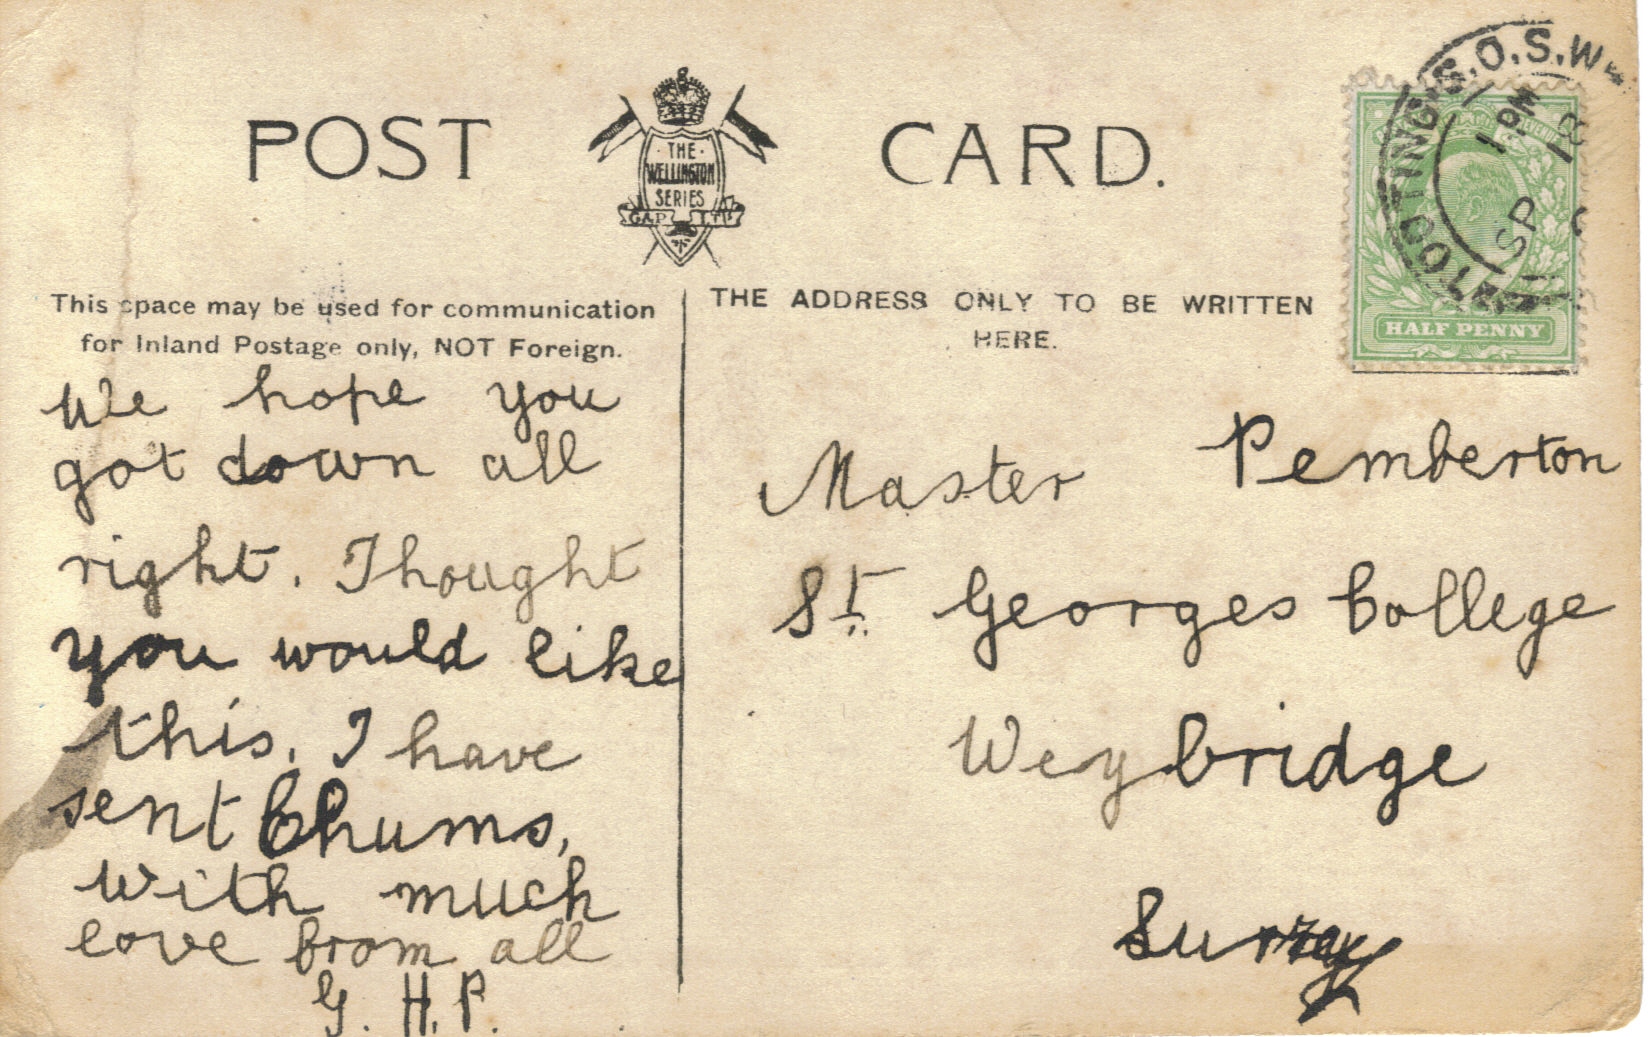 POST CARD.
THE
WELLINGTON
SERIES
G&P LTD
TOOTING S.O.S.W.
1 PM
SP
HALF PENNY
This space may be used for communication
for Inland Postage only, NOT Foreign.
THE ADDRESS ONLY TO BE WRITTEN
HERE.
We hope you
got down all
right. Thought
you would like
this. I have
sent Chums,
with much
love from all
G. H. P.
Master Pemberton
St. Georges College
Weybridge
Surrey